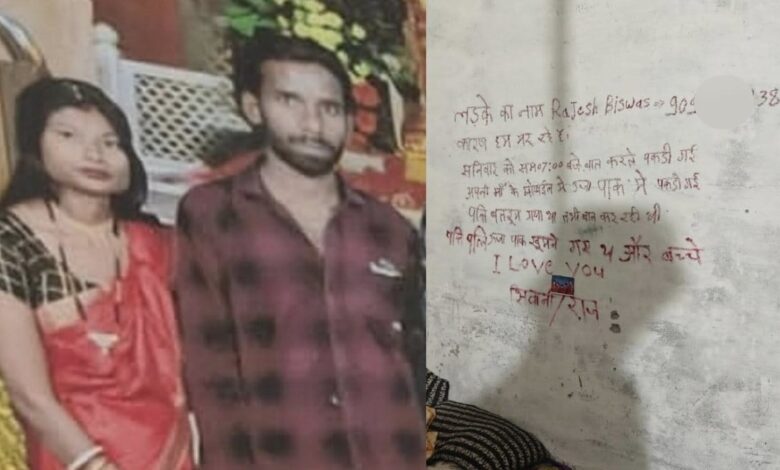 लड़के का नाम Rajesh Biswas → 909 38
कारण हम मर रहे हैं।
शनिवार को साम 07:00 बजे बात करते पकड़ी गई
अपनी माँ के मोबाईल में ऊर्जा पार्क में पकड़ी गई
पति बाथरूम गया था तभी बात कर रही थी
पति पत्नि ऊर्जा पार्क घुमने गए थे और बच्चे
I LOVE YOU
शिवानी/राज